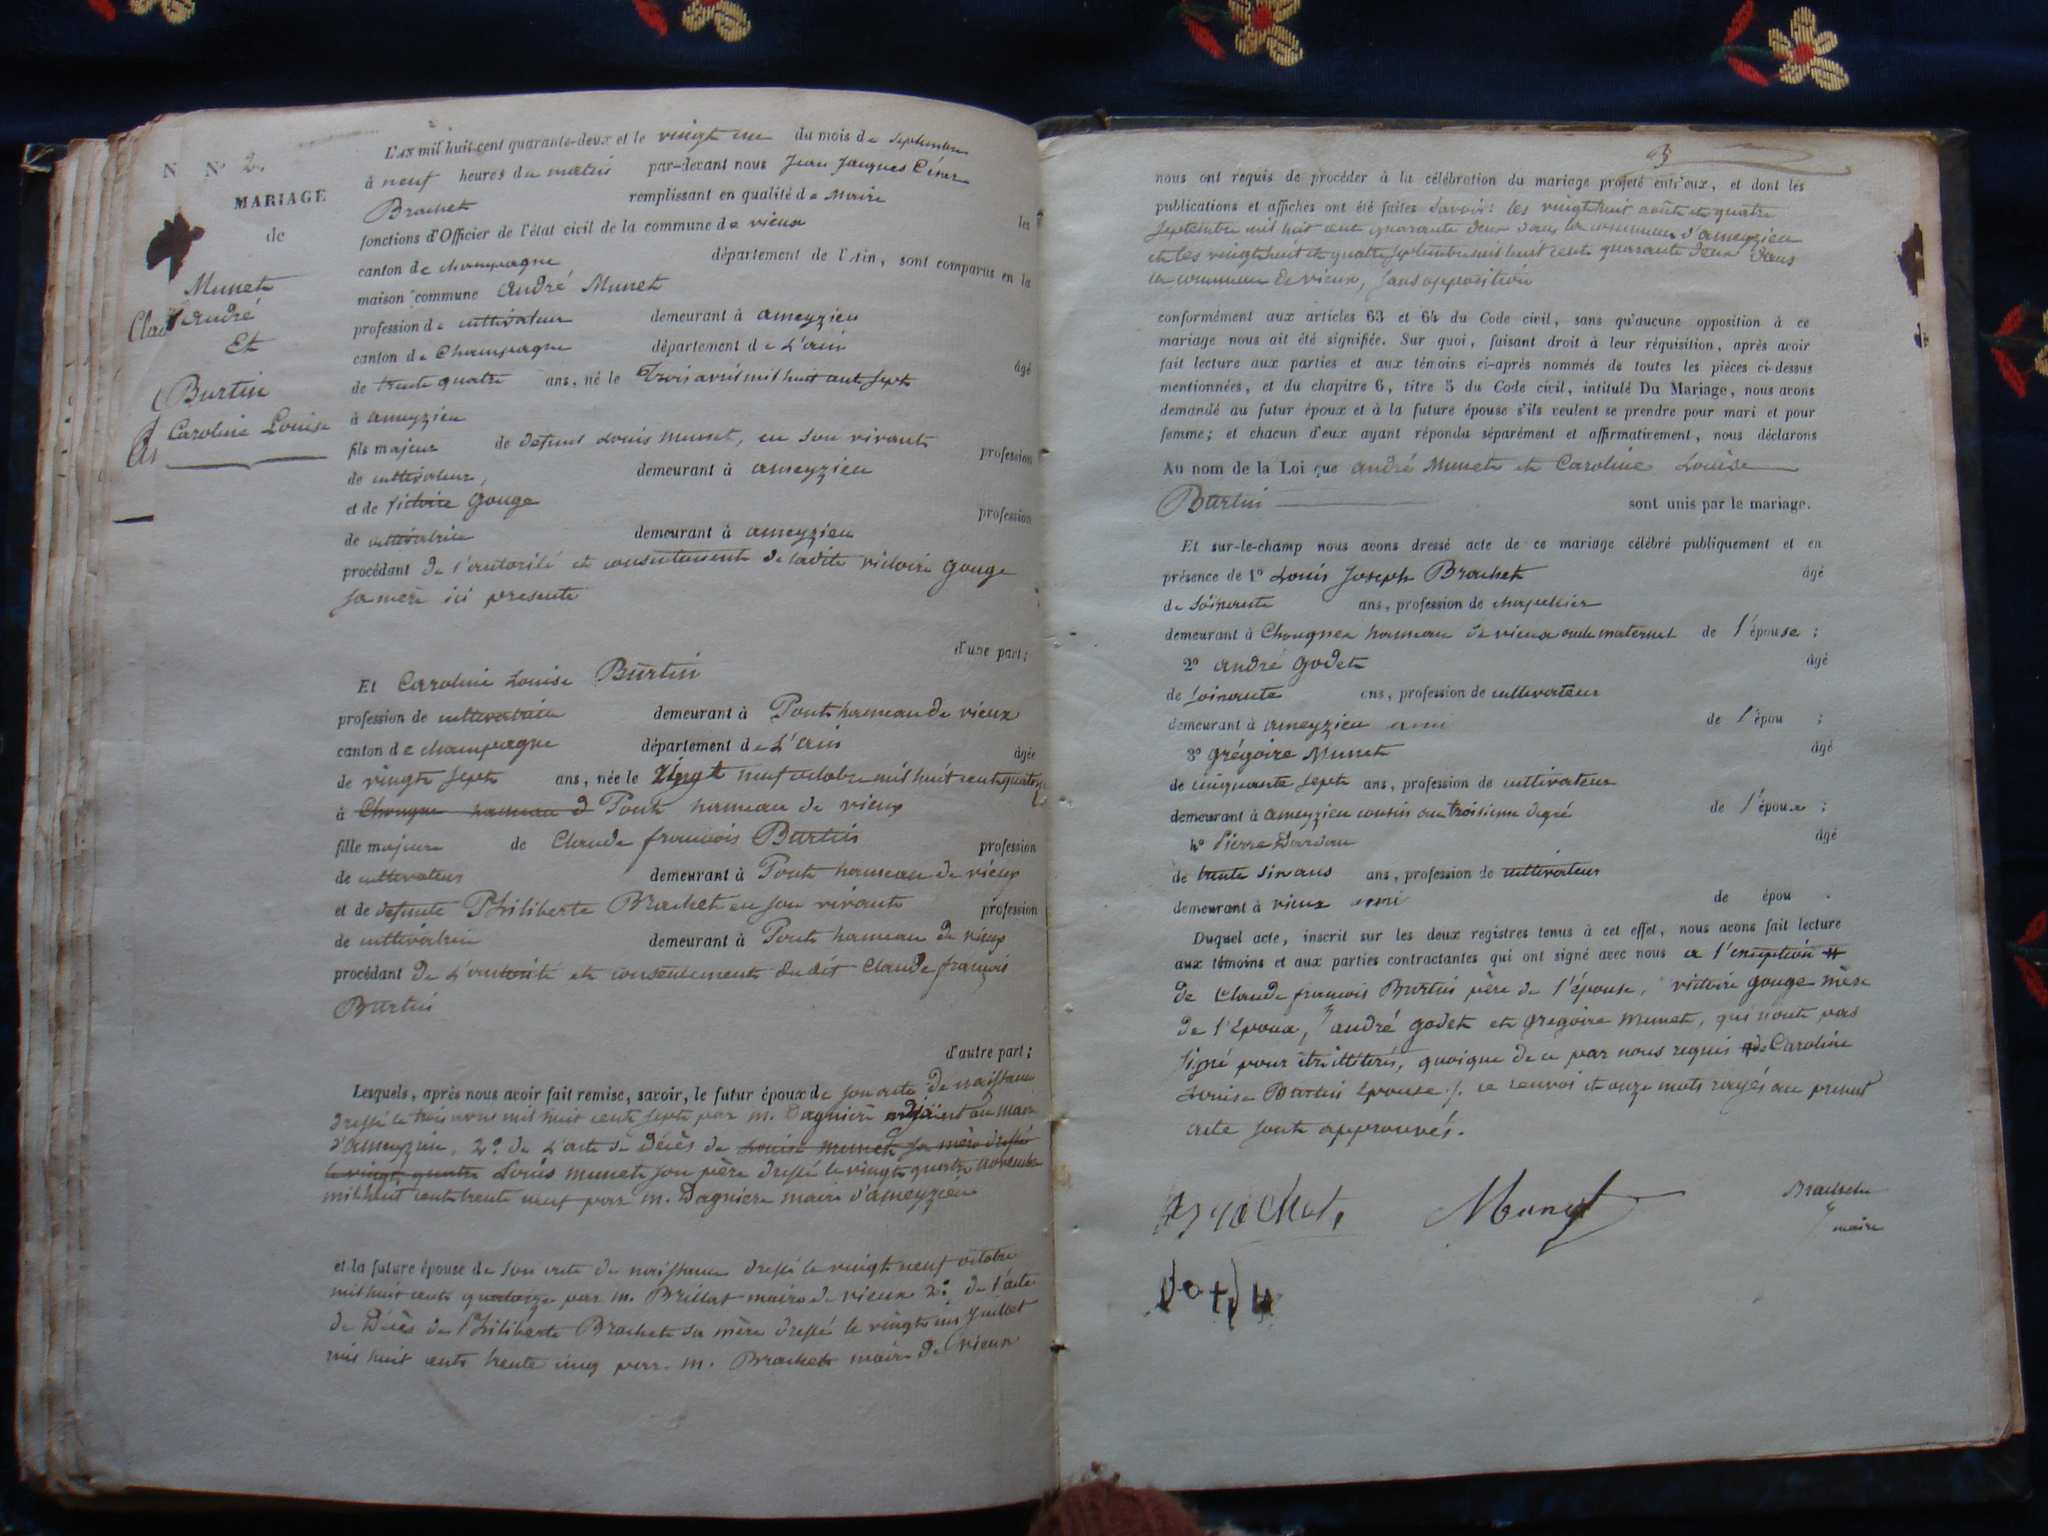 N N° 2.
MARIAGE
de
Munet
André
Et
Burtin
Caroline Louise
L'AN mil huit cent quarante-deux et le vingt un du mois de septembre
à neuf heures du matin par-devant nous Jean Jacques César
Brachet remplissant en qualité de Maire les
fonctions d'Officier de l'état civil de la commune de vieux
canton de champagne département de l'Ain, sont comparus en la
maison commune andré Munet
profession de cultivateur demeurant à ameyzieu
canton de Champagne département de L'ain âgé
de trente quatre ans, né le trois avril mil huit cent sept
à ameyzieu
fils majeur de defunt Louis munet, en son vivant profession
de cultivateur, demeurant à ameyzieu
et de victoire Gouge profession
de cultivatrice demeurant à ameyzieu
procédant de l'autorité et consentement de ladite victoire gouge
sa mère ici presente
d'une part;
Et Caroline Louise Burtin
profession de cultivatrice demeurant à Pont hameau de vieux
canton de champagne département de L'ain âgée
de vingt sept ans, née le vingt neuf octobre mil huit cent quatorze
à Chougne hameau d Pont hameau de vieux
fille majeure de Claude françois Burtin profession
de cultivateur demeurant à Pont hameau de vieux
et de defunte Philiberte Brachet en son vivant profession
de cultivatrice demeurant à Pont hameau de vieux
procédant de L'autorité et consentement dudit Claude françois
Burtin
d'autre part;
Lesquels, après nous avoir fait remise, savoir, le futur époux de son acte de naissance
dressé le trois avril mil huit cent sept par m. Dagnière adjoint au maire
d'Ameyzieu, 2° de L'acte de Décès de Louise munet sa mère dressé
le vingt quatre Louis munet son père dressé le vingt quatre novembre
mil huit cent trente neuf par m. Dagniere maire d'ameyzieu
et la future épouse de son acte de naissance dressé le vingt neuf octobre
mil huit cent quatorze par m. Brillat maire de vieux 2° de l'acte
de Décès de Philiberte Brachet sa mère dressé le vingt un juillet
mil huit cent trente cinq par m. Brachet maire de vieux
3
nous ont requis de procéder à la célébration du mariage projeté entr'eux, et dont les
publications et affiches ont été faites savoir: les vingt huit août et quatre
septembre mil huit cent quarante deux dans la commune d'ameyzieu
et les vingt huit et quatre septembre mil huit cent quarante deux dans
la commune de vieux, sans opposition
conformément aux articles 63 et 64 du Code civil, sans qu'aucune opposition à ce
mariage nous ait été signifiée. Sur quoi, faisant droit à leur réquisition, après avoir
fait lecture aux parties et aux témoins ci-après nommés de toutes les pièces ci-dessus
mentionnées, et du chapitre 6, titre 5 du Code civil, intitulé Du Mariage, nous avons
demandé au futur époux et à la future épouse s'ils veulent se prendre pour mari et pour
femme; et chacun d'eux ayant répondu séparément et affirmativement, nous déclarons
Au nom de la Loi que andré Munet et Caroline Louise
Burtin sont unis par le mariage.
Et sur-le-champ nous avons dressé acte de ce mariage célébré publiquement et en
présence de 1° Louis Joseph Brachet âgé
de soixante ans, profession de chapellier
demeurant à Chougnes hameau de vieux oncle maternel de l'épouse;
2° andré godet âgé
de soixante ans, profession de cultivateur
demeurant à ameyzieu ami de l'épou ;
3° grégoire Munet âgé
de cinquante sept ans, profession de cultivateur
demeurant à ameyzieu cousin au troisieme degré de l'époux;
4° Pierre Dardau âgé
de trente six ans ans, profession de cultivateur
demeurant à vieux ami de épou .
Duquel acte, inscrit sur les deux registres tenus à cet effet, nous avons fait lecture
aux témoins et aux parties contractantes qui ont signé avec nous a l'exception
de Claude françois Burtin père de l'épouse, victoire gouge mère
de l'époux, andré godet et gregoire munet, qui nont pas
signé pour être illiterés, quoique de ce par nous requis de Caroline
Louise Burtin épouse /. ce renvoi et onze mots rayés au present
acte sont approuvés.
Munet
Brachet
maire